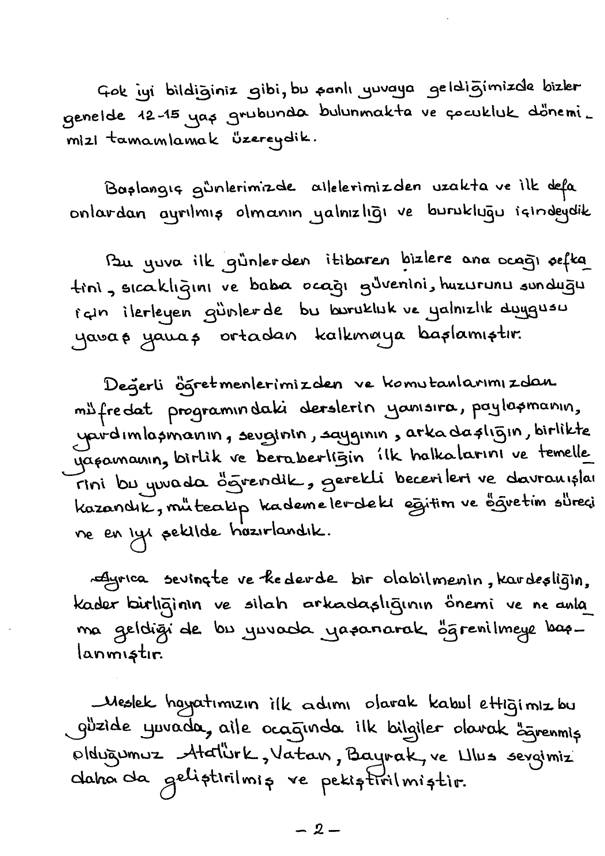 Çok iyi bildiğiniz gibi, bu şanlı yuvaya geldiğimizde bizler
genelde 12-15 yaş grubunda bulunmakta ve çocukluk dönemi-
mizi tamamlamak üzereydik.
Başlangıç günlerimizde ailelerimizden uzakta ve ilk defa
onlardan ayrılmış olmanın yalnızlığı ve burukluğu içindeydik
Bu yuva ilk günlerden itibaren bizlere ana ocağı şefka-
tini, sıcaklığını ve baba ocağı güvenini, huzurunu sunduğu
için ilerleyen günlerde bu burukluk ve yalnızlık duygusu
yavaş yavaş ortadan kalkmaya başlamıştır.
Değerli öğretmenlerimizden ve komutanlarımızdan
müfredat programındaki derslerin yanısıra, paylaşmanın,
yardımlaşmanın, sevginin, saygının, arkadaşlığın, birlikte
yaşamanın, birlik ve beraberliğin ilk halkalarını ve temelle-
rini bu yuvada öğrendik, gerekli becerileri ve davranışlaı
kazandık, müteakip kademelerdeki eğitim ve öğretim süreci
ne en iyi şekilde hazırlandık.
Ayrıca sevinçte ve kederde bir olabilmenin, kardeşliğin,
kader birliğinin ve silah arkadaşlığının önemi ve ne anla-
ma geldiği de bu yuvada yaşanarak öğrenilmeye baş-
lanmıştır.
Meslek hayatımızın ilk adımı olarak kabul ettiğimiz bu
güzide yuvada, aile ocağında ilk bilgiler olarak öğrenmiş
olduğumuz Atatürk, Vatan, Bayrak, ve Ulus sevgimiz
daha da geliştirilmiş ve pekiştirilmiştir.
- 2 -